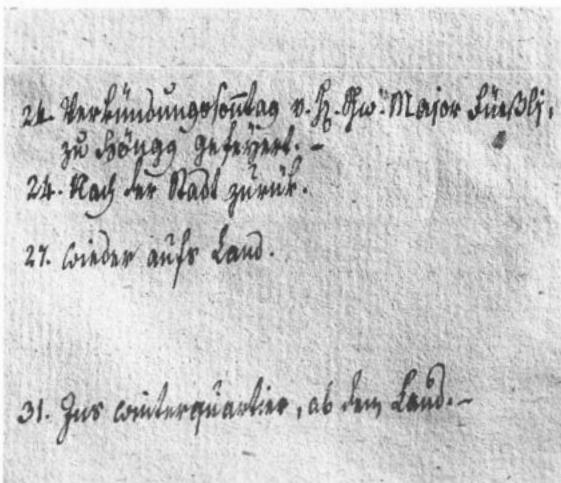 24. Verkündungssonntag v. H. Schw. Major Füeßlj,
zu Höngg gefeyert. -
24. Nach der Stadt zurük.
27. wieder aufs Land.
31. Ins winterquartier, ab dem Land. -